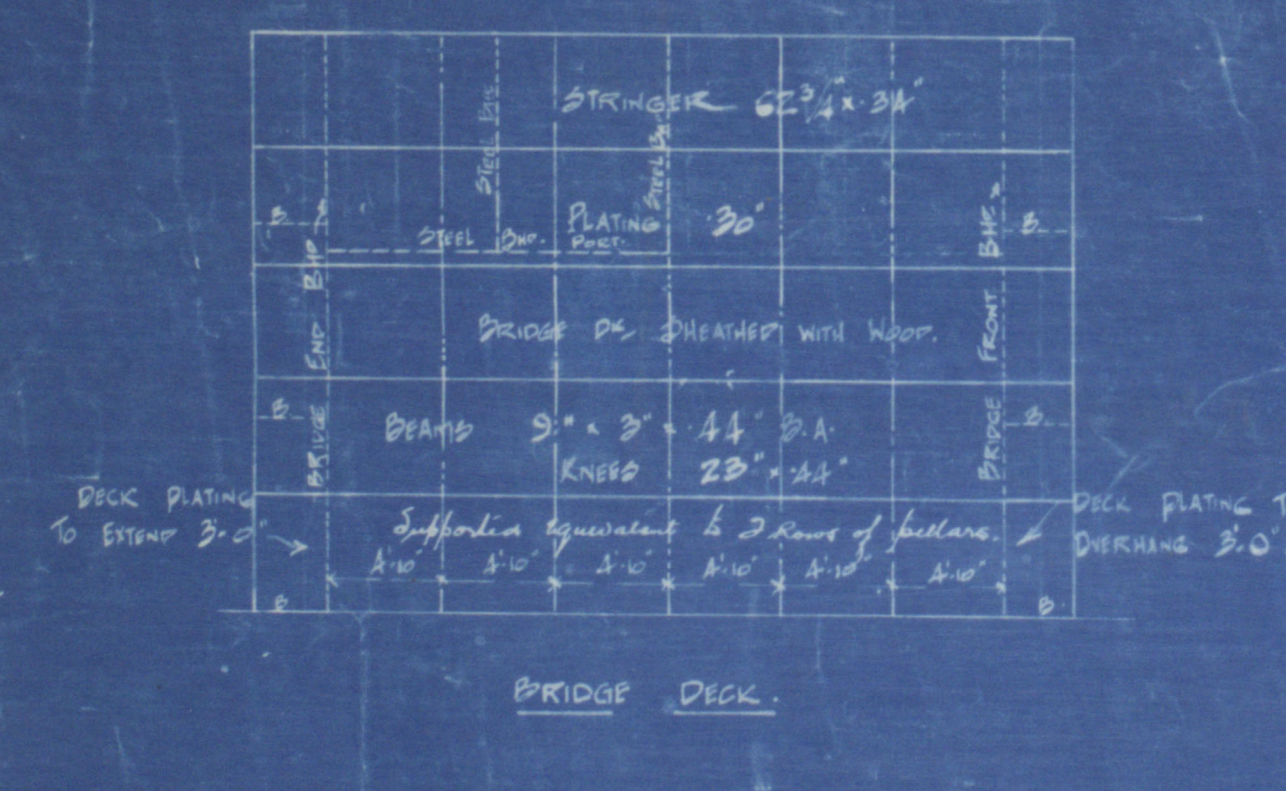 STRINGER 62 3/4" x .34"
STEEL BHD.
STEEL BHD.
PLATING .30"
PORT.
STEEL BHD.
B
B
BRIDGE END BHD.
BRIDGE FRONT BHD.
BRIDGE DK. SHEATHED WITH WOOD.
B
B
BEAMS 9" x 3" x .44" B.A.
KNEES 23" x .44"
DECK PLATING
TO EXTEND 3'.0"
DECK PLATING T
OVERHANG 3'.0"
Supported equivalent to 2 Rows of pillars.
4'.10" 4'.10" 4'.10" 4'.10" 4'.10" 4'.10"
B
B
BRIDGE DECK.